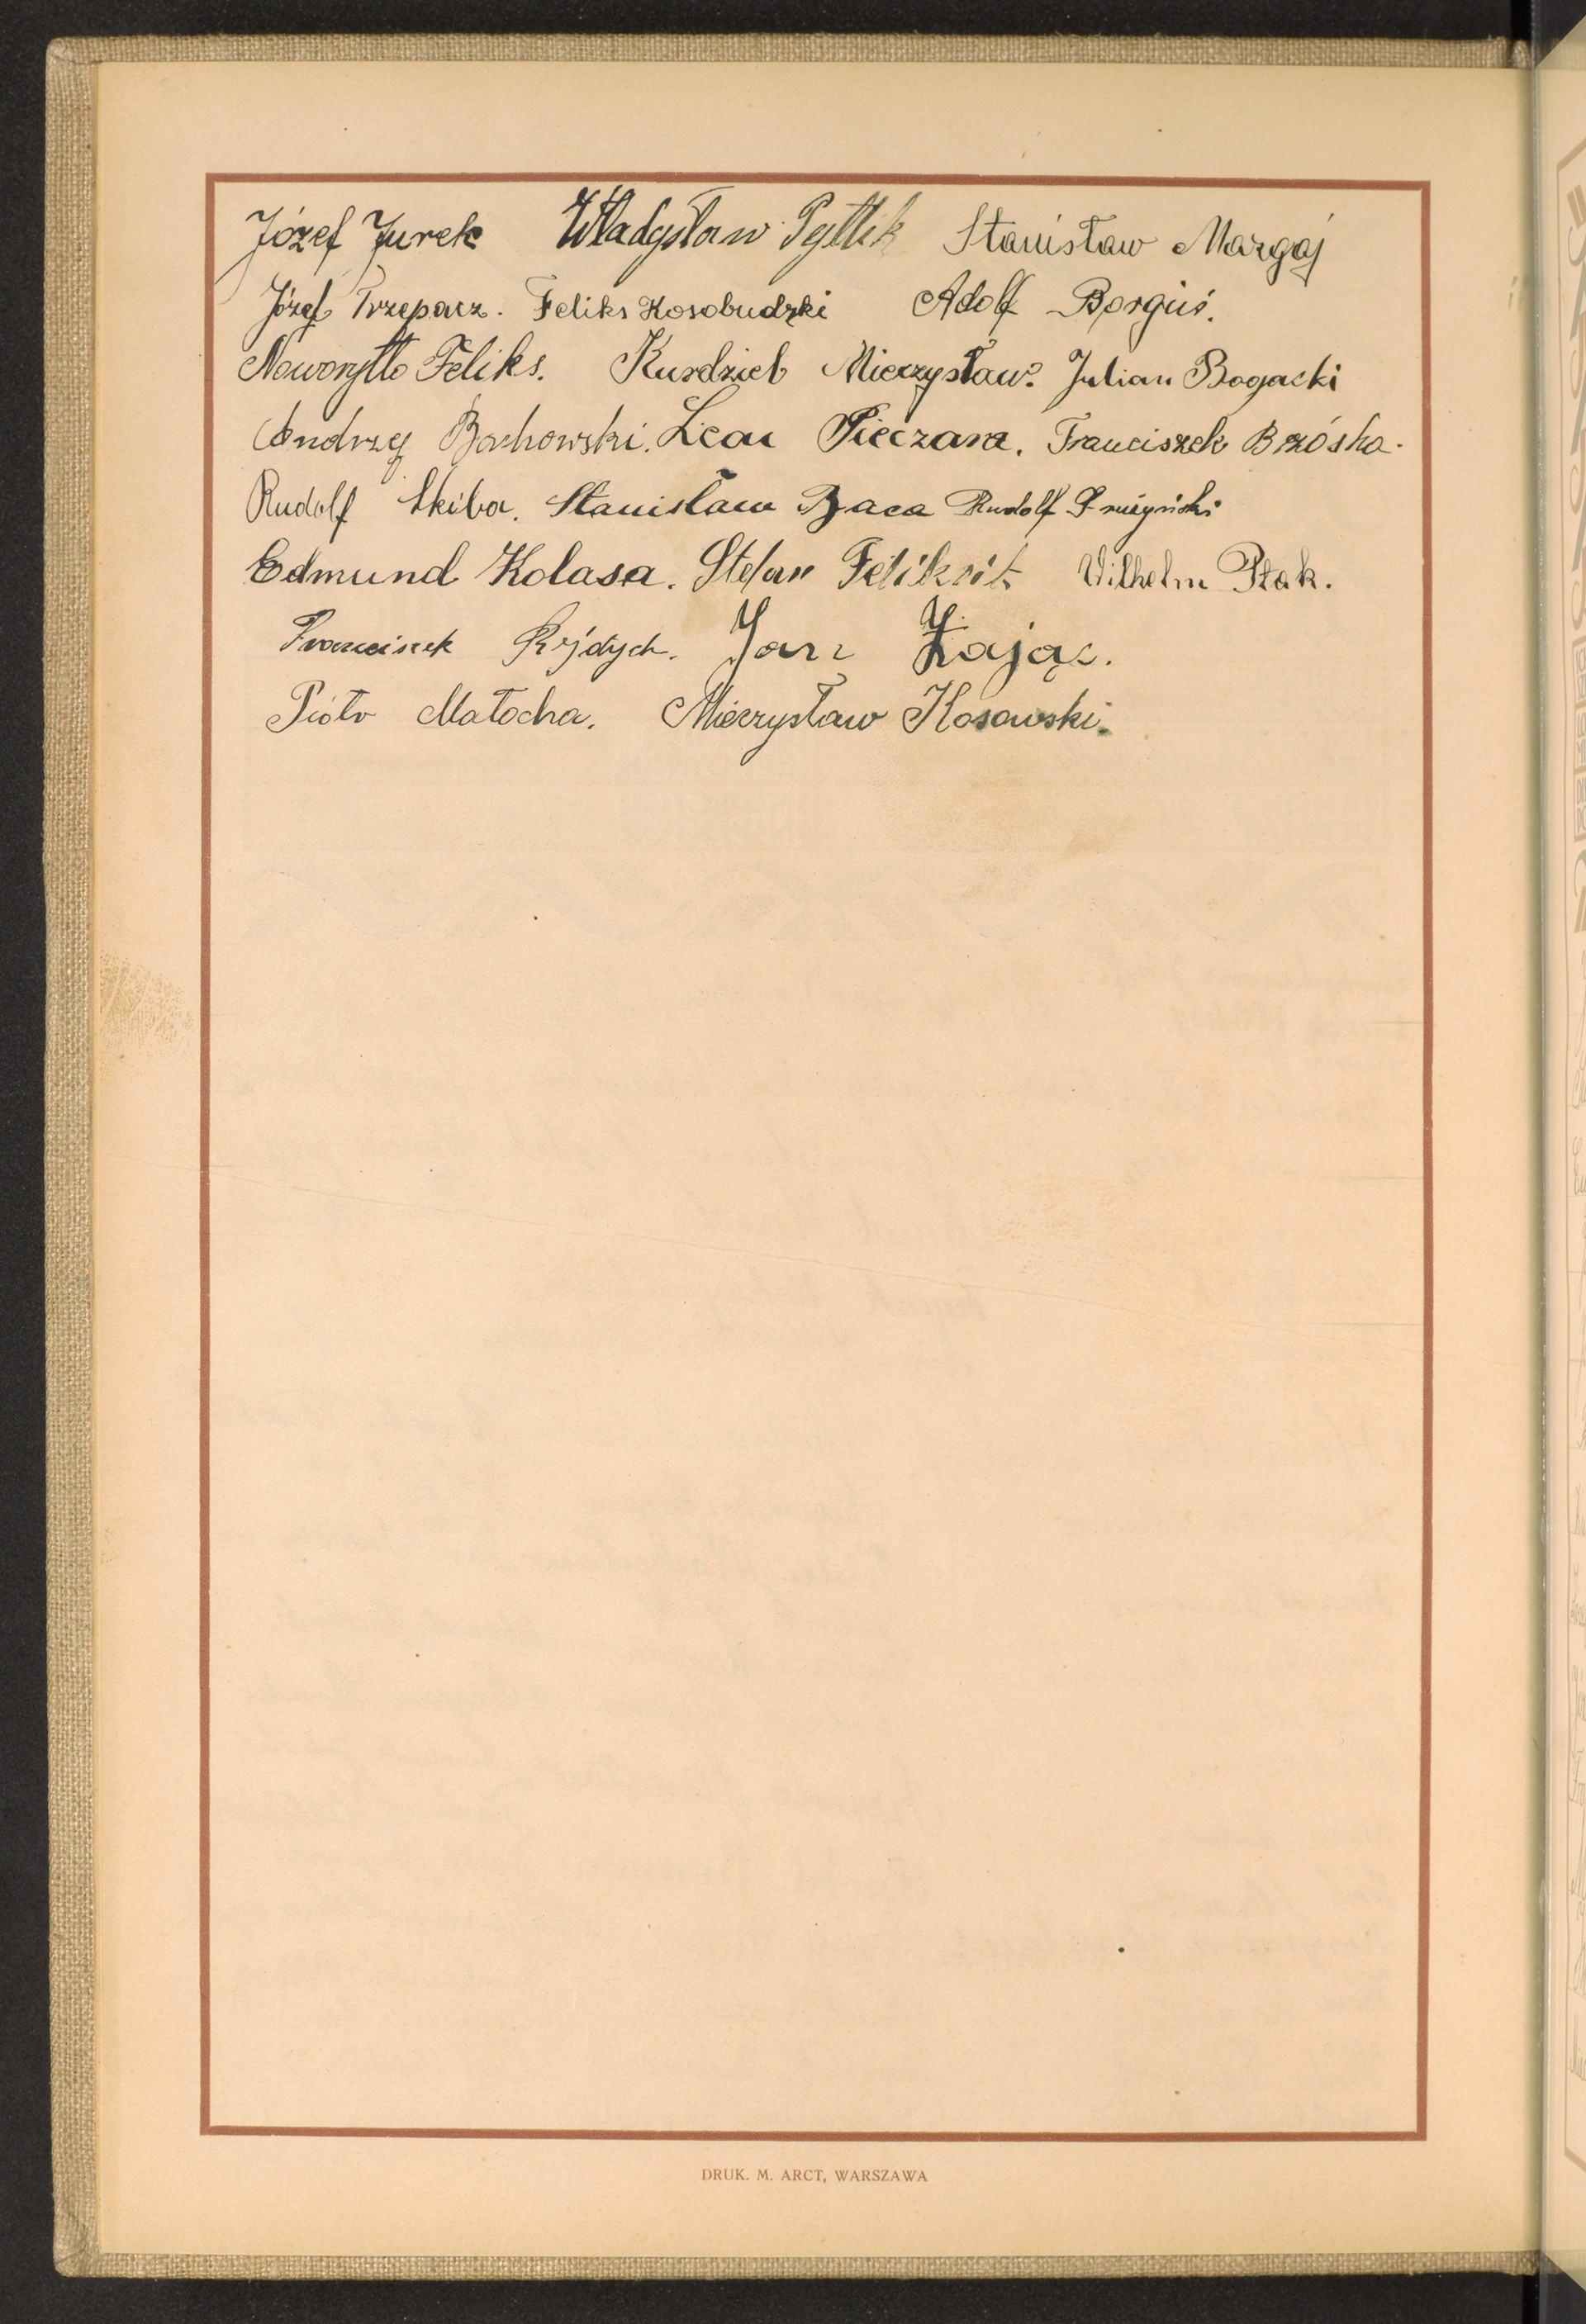 Józef Jurek Władysław Pytlik Stanisław Margaj
Józef Trzepacz. Feliks Kosobudzki Adolf Borguś.
Noworytto Feliks. Kurdziel Mieczysław. Julian Bogacki
Andrzej Bachowski. Leon Pieczara. Franciszek Brzóska.
Rudolf Skiba. Stanisław Baca Rudolf
Edmund Kolasa. Stefan Feliksik Wilhelm Ptak.
Franciszek Jan Zając.
Piotr Matocha. Mieczysław Kosowski.
DRUK. M. ARCT, WARSZAWA